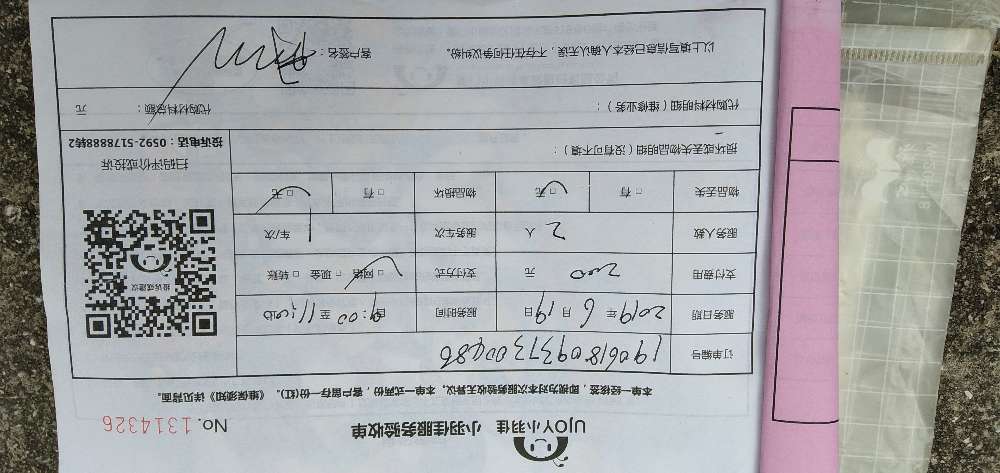 UJOY小羽佳 小羽佳服务验收单
No. 1314326
本单一经接签，即视为对本次服务验收无异议，本单一式两份，客户留存一份(红)。《维保须知》详见背面。
订单编号 190618093730048б
服务日期 2019年6月19日 服务时间 9:00至11:00
支付费用 200元 支付方式 □网络 □现金 □转账
服务人数 2人 服务车次 1车/次
物品丢失 □有 □无 物品损坏 □有 □无
投诉或建议
扫码评价或投诉
投诉电话：0592-5178888转2
损坏或丢失物品明细（没有可不填）：
代购材料明细（维修业务）： 代购材料总额： 元
以上填写信息已经本人确认无误，不存在任何争议纠纷。 客户签名：